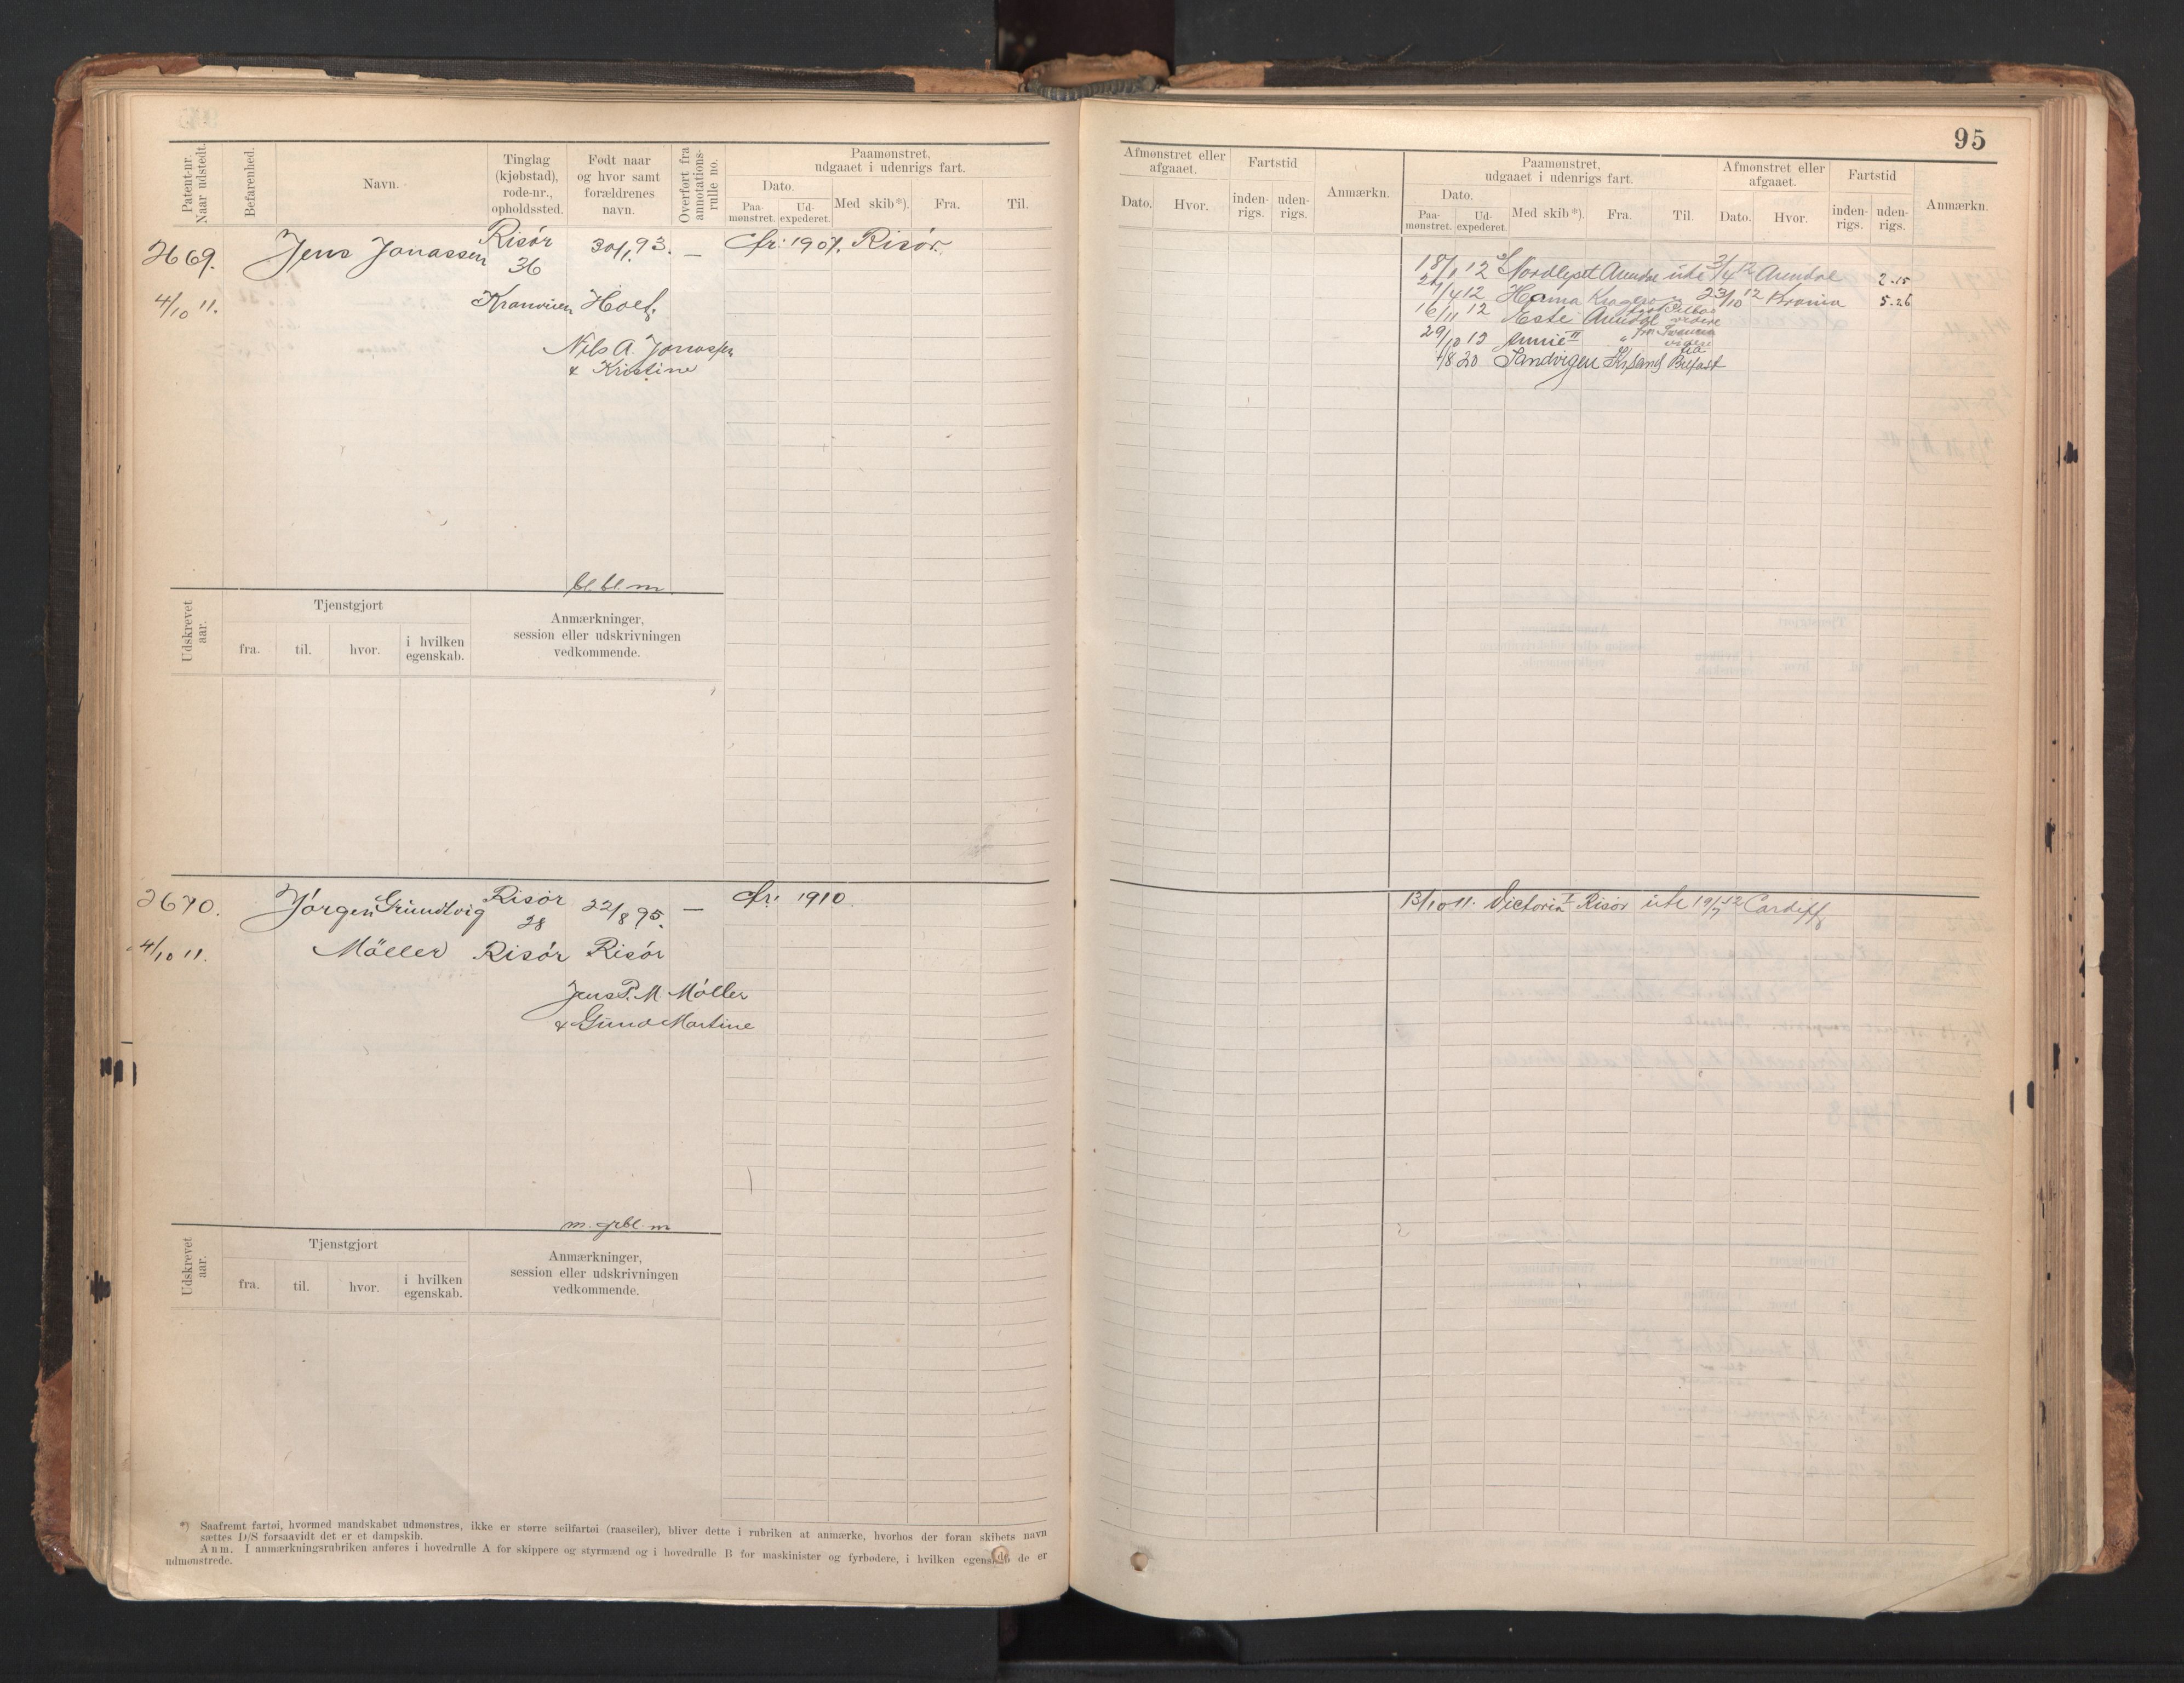 95
Patent-nr. Naar udstedt.
Befarenhed.
Navn.
Tinglag (kjøbstad), rode-nr., opholdssted.
Født naar og hvor samt forældrenes navn.
Overført fra annotations-rulle no.
Paamønstret, udgaaet i udenrigs fart.
Dato.
Paa-mønstret.
Ud-expederet.
Med skib*).
Fra.
Til.
2669. Jens Jonassen Risör 30/1 93. — Cfr: 1907. Risör.
36
4/10 11. Kranvien Holt
Nils A. Jonassen
& Kristine
bl. bl. m.
Udskrevet aar.
Tjenstgjort
fra.
til.
hvor.
i hvilken egenskab.
Anmærkninger, session eller udskrivningen vedkommende.
2670. Jörgen Grundtvig Risör 22/8 95. — Cfr: 1910.
28
4/10 11. Möller Risör Risör
Jens P. M. Möller
& Gund Martine
m. grbl. m
Udskrevet aar.
Tjenstgjort
fra.
til.
hvor.
i hvilken egenskab.
Anmærkninger, session eller udskrivningen vedkommende.
*) Saafremt fartøi, hvormed mandskabet udmønstres, ikke er større seilfartøi (raaseiler), bliver dette i rubriken at anmærke, hvorhos der foran skibets navn
sættes D/S forsaavidt det er et dampskib.
Anm. I anmærkningsrubriken anføres i hovedrulle A for skippere og styrmænd og i hovedrulle B for maskinister og fyrbødere, i hvilken egenskab de er
udmønstrede.
Afmønstret eller afgaaet.
Dato.
Hvor.
Fartstid
inden-rigs.
uden-rigs.
Anmærkn.
Paamønstret, udgaaet i udenrigs fart.
Dato.
Paa-mønstret.
Ud-expederet.
Med skib*).
Fra.
Til.
Afmønstret eller afgaaet.
Dato.
Hvor.
Fartstid
inden-rigs.
uden-rigs.
Anmærkn.
18/1 12 Arendal ute 3/4 12 Arendal 2.15
/4 12 Kragerö 23/10 12 5.26
16/11 12 Este Arendal
29/10 13 Annie II "
/8 20 Sandvigen Kr.sand Belfast
13/10 11. Victoria I Risör ute 19/7 12 Cardiff